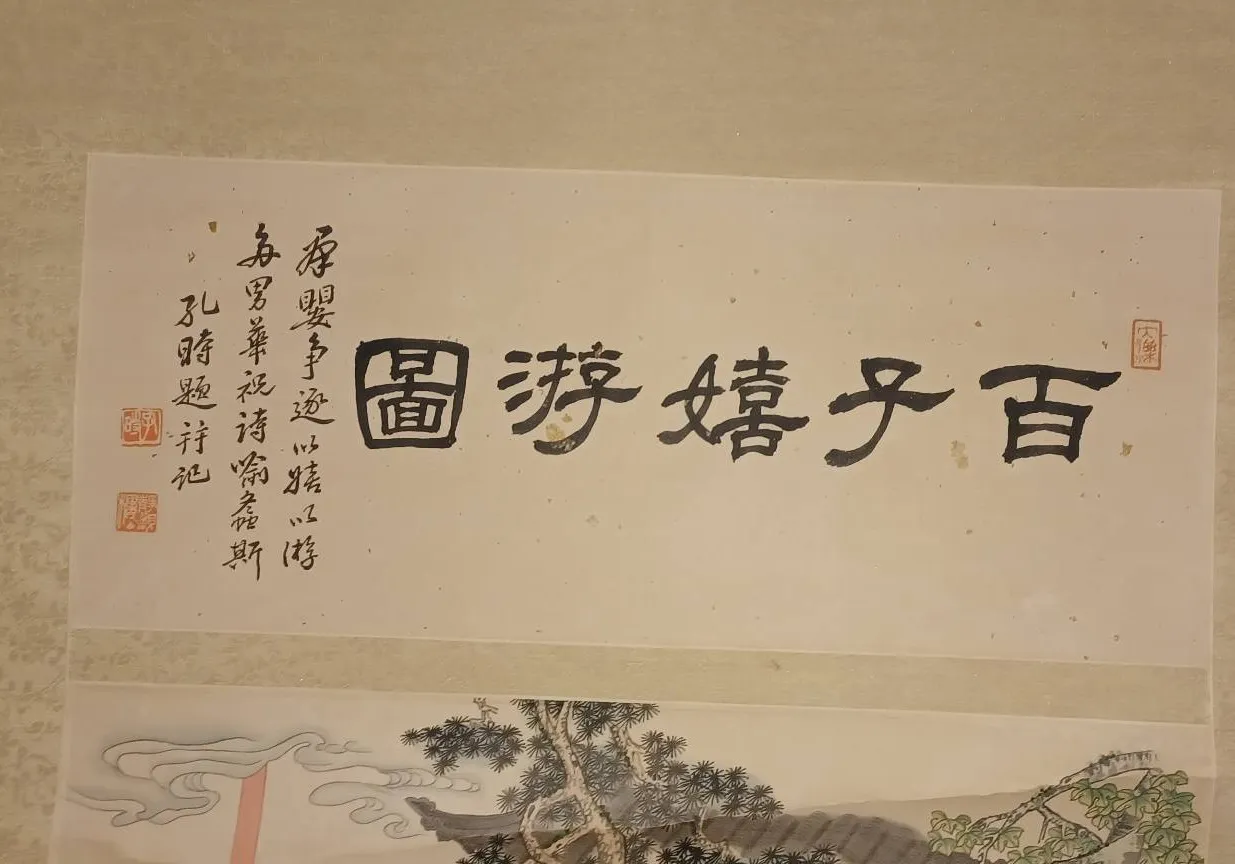 百子嬉游圖
群嬰争逐以嬉以游
多男華祝詩喻螽斯
孔時題并記